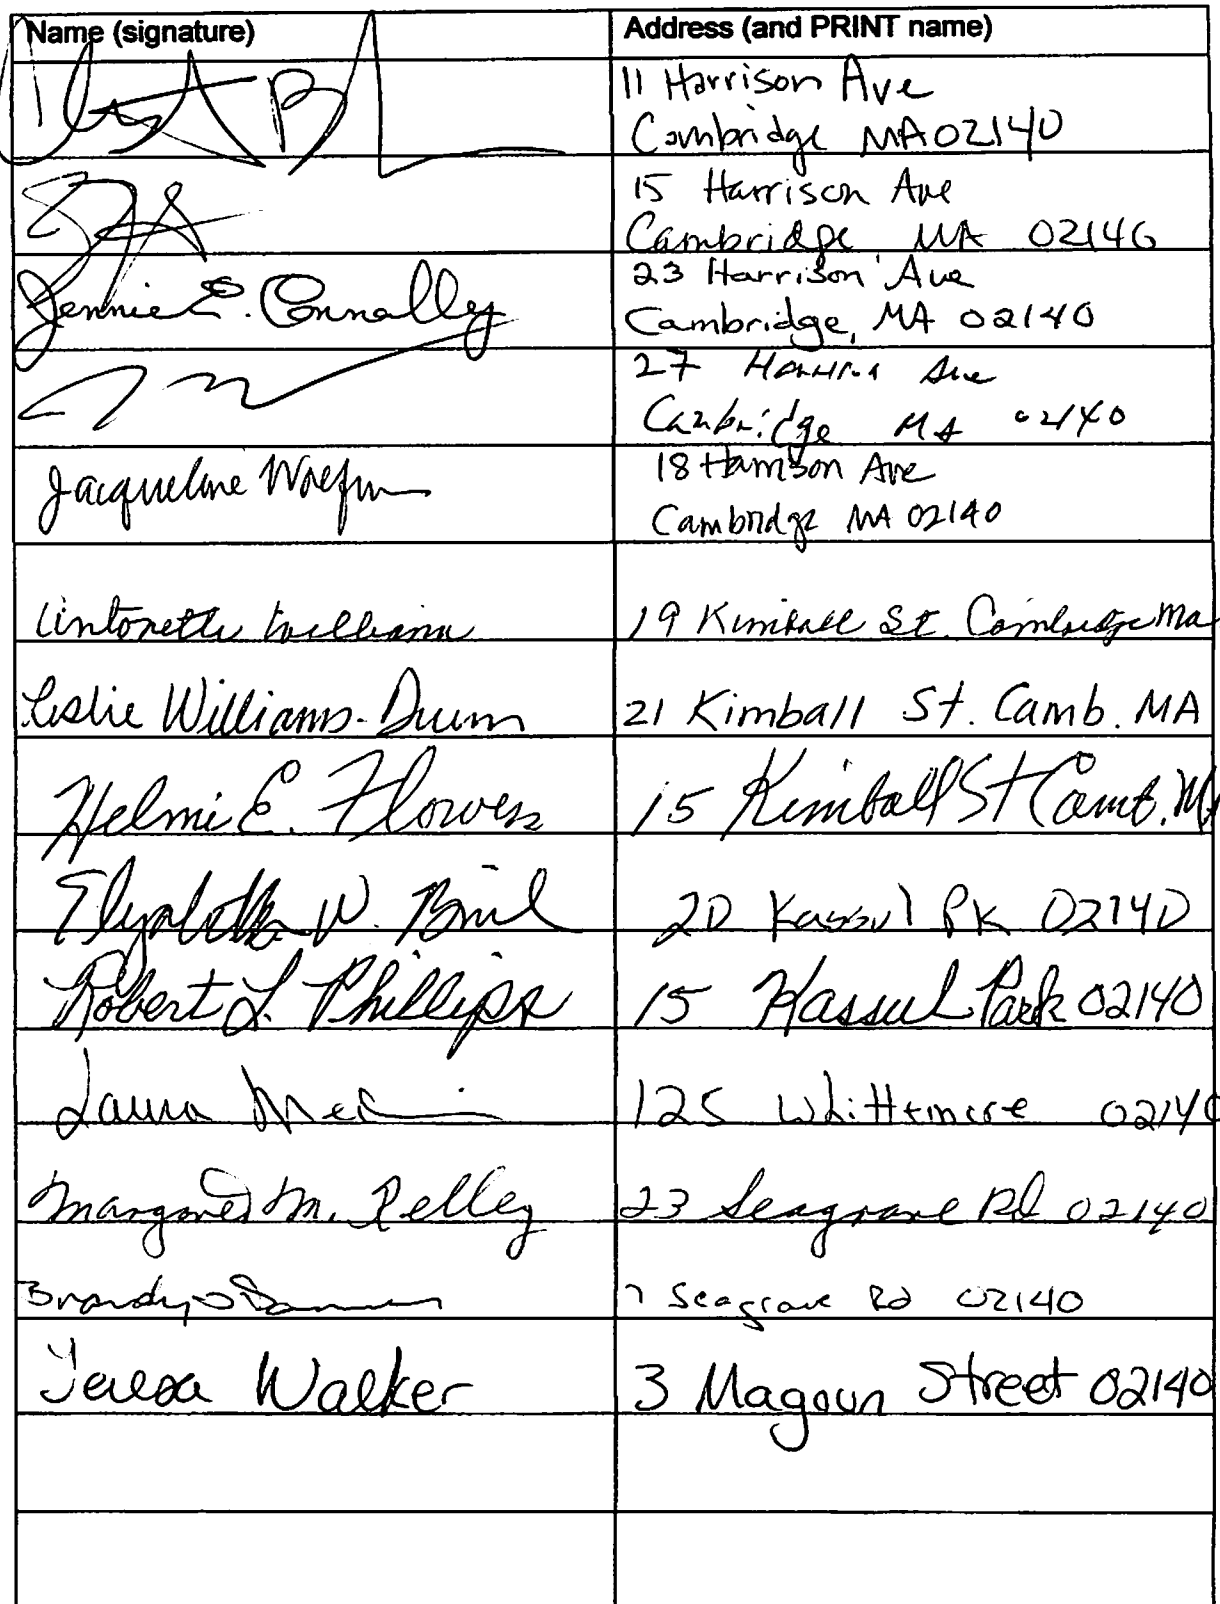 Name (signature) Address (and PRINT name)
11 Harrison Ave
Cambridge MA 02140
15 Harrison Ave
Cambridge MA 02140
Jennie E. Connolley 23 Harrison Ave
Cambridge, MA 02140
27 Harrison Ave
Cambridge MA 02140
Jacqueline 18 Harrison Ave
Cambridge MA 02140
Antonette Williams 19 Kimball St. Cambridge Ma
Leslie Williams-Dunn 21 Kimball St. Camb. MA
Helmi E. Flowers 15 Kimball St Camb. MA
W. 20 Kassul Pk 02140
Robert L. Phillips 15 Kassul Park 02140
Laura 125 Whittemore 02140
Margaret M. Kelley 23 Seagrave Rd 02140
Brandy 7 Seagrave Rd 02140
Teresa Walker 3 Magoun Street 02140